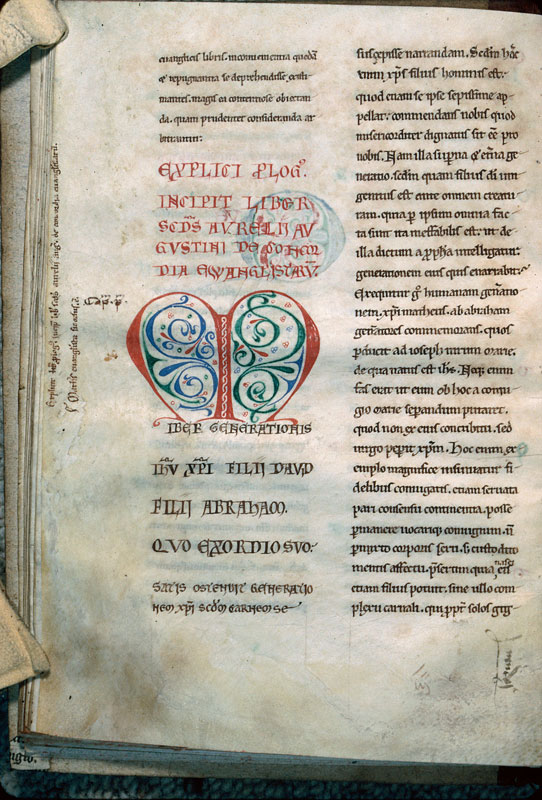 euangliciis libris. inconuenientia quedā
& repugnantia se deprehendisse existi-
mantes. magis ea contentiose obiectan
da. quam prudenter consideranda ar
bitrantur.
EXPLICI PLOG̅.
INCIPIT LIBER
SC̅DS AVRELII AV
GVSTINI DE CONCOR
DIA EWANGLISTARV̅
IBER GENERATIONIS
IHV XPI FILII DAVID
FILII ABRAHAM.
QVO EXORDIO SVO.
SATIS OSTENDIT GENERATIO
NEM XPI SCD̅M CARNEM SE
suscepisse narrandam. Scd̅m hoc
enim xp̅s filius hominis est.
quod etiam se ipse sepissime ap-
pellat. commendans nobis quod
misericorditer dignatus sit e̅e̅ pro
nobis. Nam illa sup̅na & et̅na ge-
neratio. scd̅m quam filius di̅ uni
genitus est ante omnem creatu
ram. qua p̱ ipsum omnia fac-
ta sunt ita ineffabilis est. ut de
illa dictum a ꝓph̅a intelligatur.
generationem eius quis enarrabit.
Exequitur g̊ humanam gen̅atio
nem xp̅i matheus. ab abraham
gen̅atores commemorans. quos
p̱ducit ad ioseph uirum marie.
de qua natus est ih̅s. Neq; enim
fas erat ut eum ob hoc a coniu
gio marie separandum putaret.
quod non ex eius concubitu. sed
uirgo pep̱it xp̅m. Hoc enim ex
emplo magnifice insinuatur fi
delibus coniugatis. etiam seruata
pari consensu continentia. posse
p̱manere uocariq; coniugium. n̅
p̱mixto corporis sexu. s; custodito
mentis affectu. p̅sertim quia nasci eis
etiam filius potuit. sine ullo com
plexu carnali. qui ꝓpt̅ solos gig-
Cap. p̅.